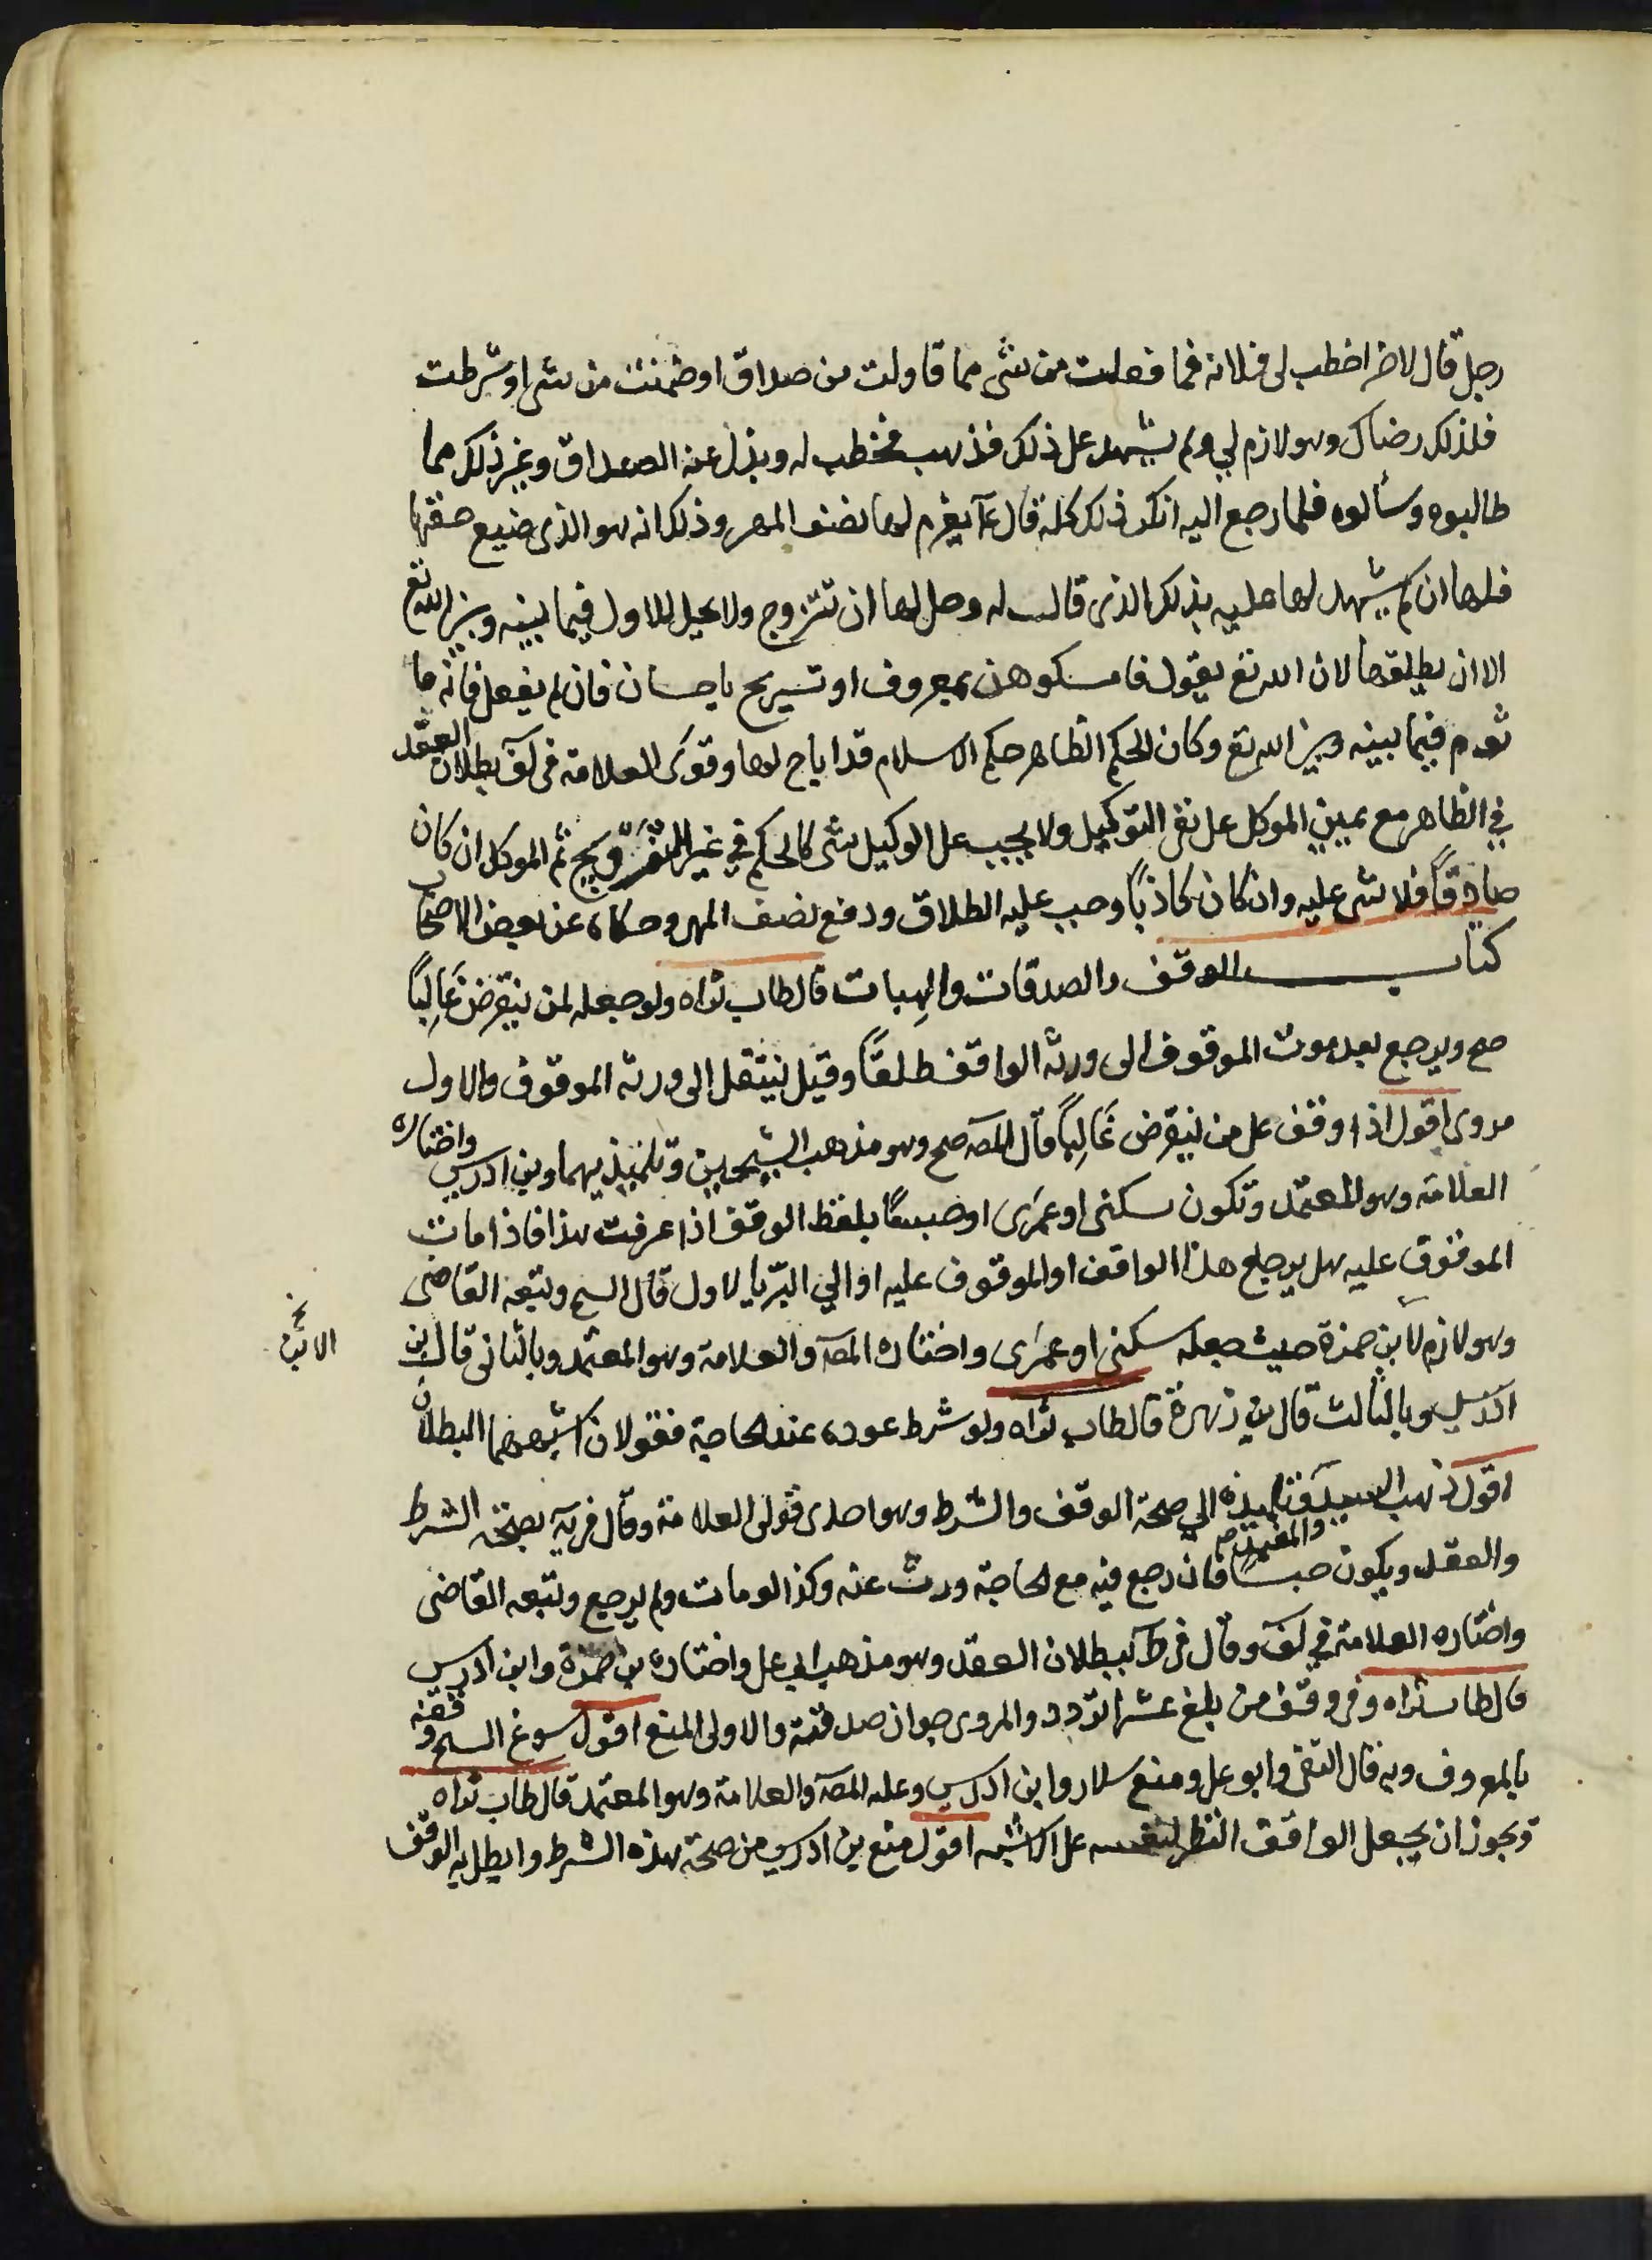 رجل قال لاخر اخطب لى فلانه فما فعلت من شى مما قاولت من صداق او ضمنت من شى او شرطت
فلذلك رضاى وهو لازم لي ولم يشهد على ذلك فذهب فخطب له وبذل عنه الصداق وغير ذلك مما
طالبوه وسألوه فلما رجع اليه انكر ذلك كله قال عآ يغرم لها نصف المهر وذلك انه هو الذى ضيع حقها
فلها ان لم يشهد لها عليه بذلك الذى قال له وحل لها ان تتزوج ولا يحل للاول فيما بينه وبين الله تع
الا ان يطلقها لان الله تع يقول فامسكوهن بمعروف او تسريح باحسان فان لم يفعل فانه ما
ثوم فيما بينه وبين الله تع وكان الحكم الظاهر حكم الاسلام قد اباح لها وقوى العلامة فى لف بطلان العقد
في الظاهر مع يمين الموكل على نفى التوكيل ولا يجب على الوكيل شى كالحكم في غير التزويج ثم الموكل ان كان
صادقاً فلا شى عليه وان كان كاذباً وجب عليه الطلاق ودفع نصف المهر وحكاه عن بعض الاصحاب
كتاب الوقف والصدقات والهبات قال طاب ثراه ولو جعله لمن ينقرض غَالِباً
صح ويرجع بعد موت الموقوف الى ورثه الواقف طلقاً وقيل ينتقل الى ورثه الموقوف والاول
مروى اقول اذا وقف على من ينقرض غَالِباً قال المصه صح وهو مذهب الشيخين وتلميذيهما وبن ادريس واختاره
العلامة وهو المعتمد وتكون سكنى او عمرَى او حبساً بلفظ الوقف اذا عرفت هذا فاذا مات
الموقوف عليه هل يرجع هذا الواقف او الموقوف عليه او الي البرّ بالاول قال الشيح وتبعه القاضى
وهو لازم لابن حمزة حيث جعله سكنى او عمرَى واختاره المصه والعلامة وهو المعتمد وبالثانى قال بن
ادريس وبالثالث قال بن زهرة قال طاب ثراه ولو شرط عوده عند الحاجة فقولان اشبههما البطلان
اقول ذهب السيد وتلميذه والمفيد الي صحة الوقف والشرط وهو احدى قولى العلامة وقال فى يه بصحة الشرط
والعقد ويكون حبساً فان رجع فيه مع الحاجة ورث عنه وكذا لو مات ولم يرجع وتبعه القاضى
واختاره العلامة في لف وقال فى ط ببطلان العقد وهو مذهب ابي على واختاره بن حمزة وابن ادريس
قال طاب ثراه وفى وقف من بلغ عشرا تردد والمروى جواز صدقته والاولى المنع اقول سوغ الشيح وقفه
بالمعروف وبه قال التقى وابو على ومنع سلار وابن ادريس وعليه المصه والعلامة وهو المعتمد قال طاب ثراه
ويجوز ان يجعل الواقف النظر لنفسه على الاشبه اقول منع بن ادريس من صحة هذه الشرط وابطل به الوقف